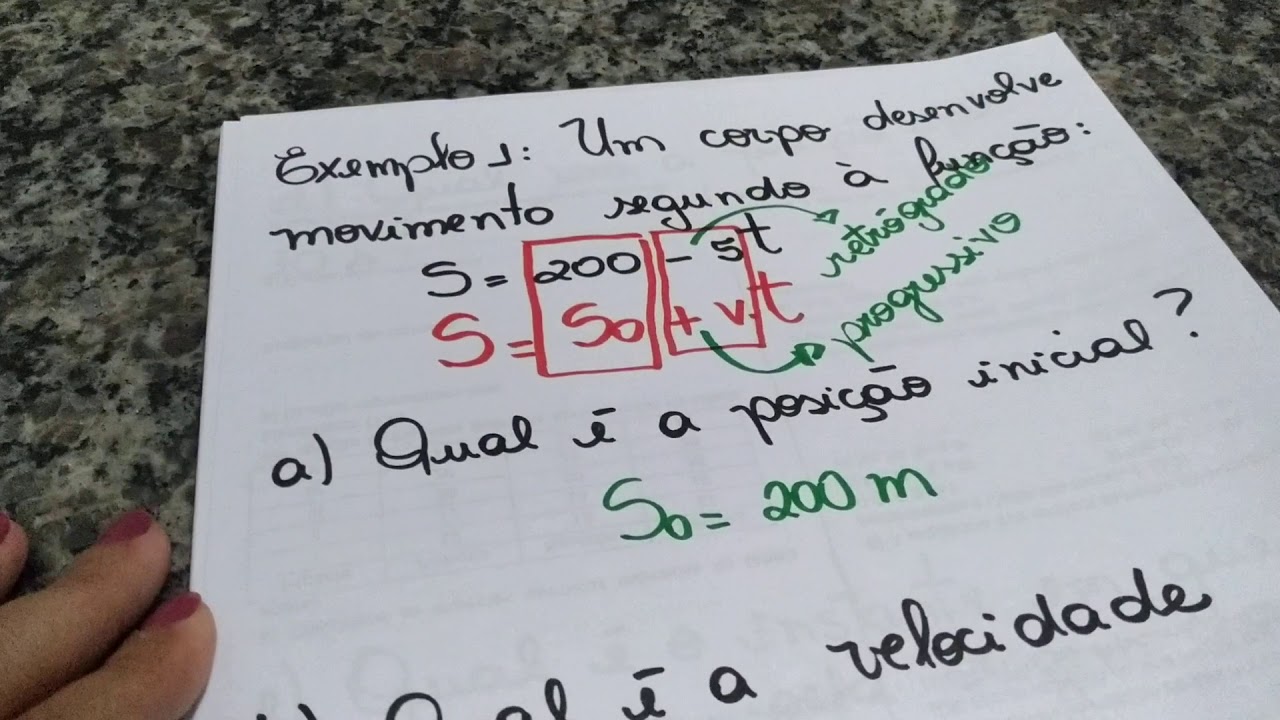 Exemplo 1: Um corpo desenvolve
movimento segundo à função:
S = 200 - 5t
retrógrado
S = So + v.t
progressivo
a) Qual é a posição inicial?
So = 200 m
Qual é a velocidade